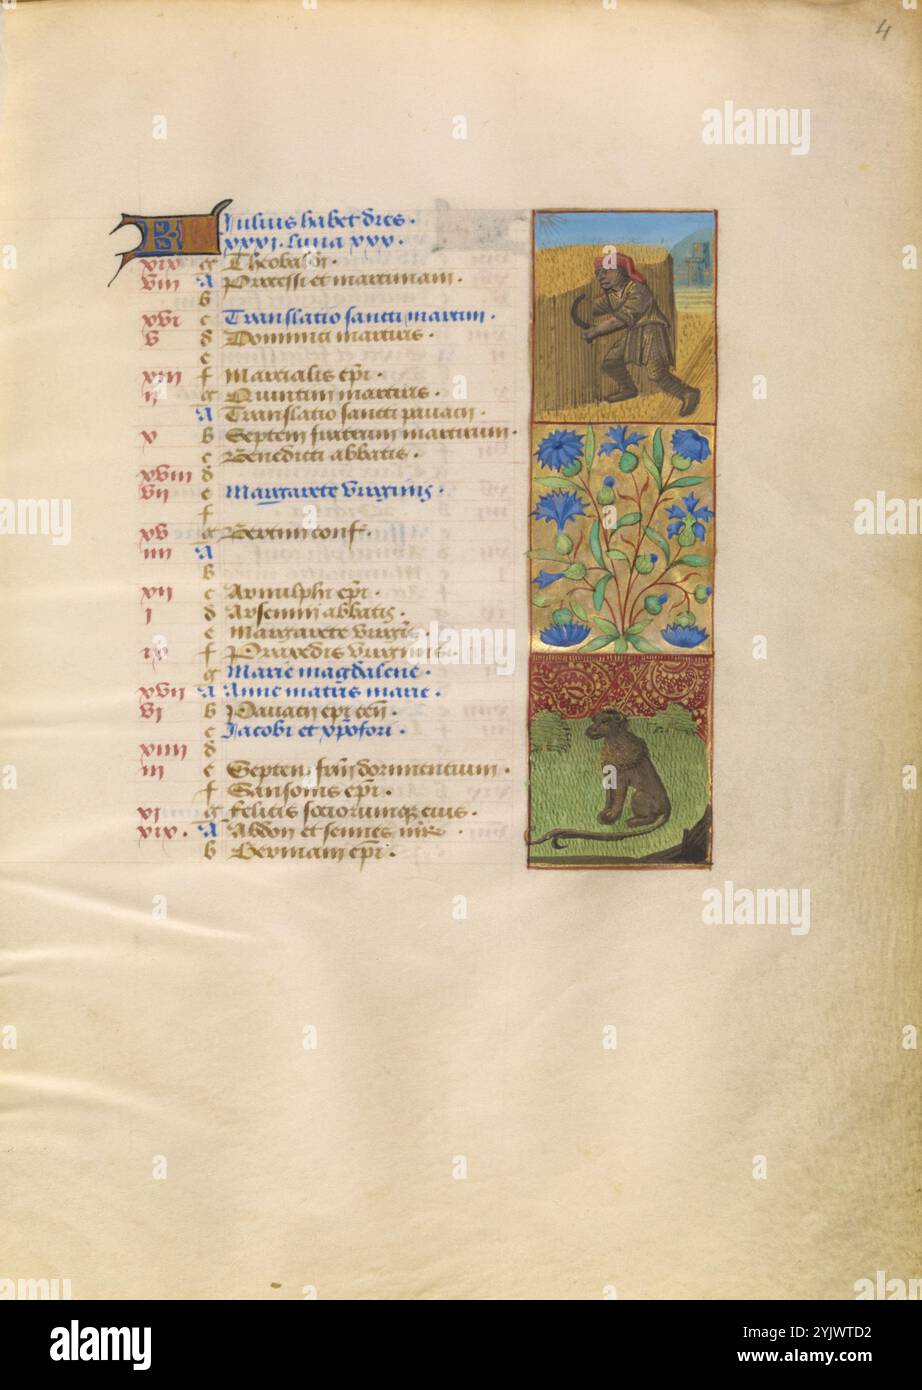 4
KL Julius habet dies.
xxxi. luna xxx.
xix g Theobaldi.
viii A Processi et martiniani.
b
xvi c Translatio sancti martini.
v d Dominici martiris.
e
xiii f Marcialis epi.
ii g Quintini martiris.
A Translatio sancti
x b Septem fratrum martirum.
c Benedicti abbatis.
xviii d
vii e Margarete virginis.
f
xv g Bertini conf.
iiii A
b
xii c Arnulphi epi.
i d Arsenii abbatis.
e Margarete virgis
ix f Praxedis virginis.
g Marie magdalene.
xvii A Anne matris marie.
vi b epi
c Jacobi et xpofori.
xiiii d
iii e Septem frm dormientium.
f Sansonis epi.
xi g felicis sociorumque eius.
xix. A Abdon et sennes
b Germani epi.
alamy
alamy
Image ID: 2YJWTD2
www.alamy.com